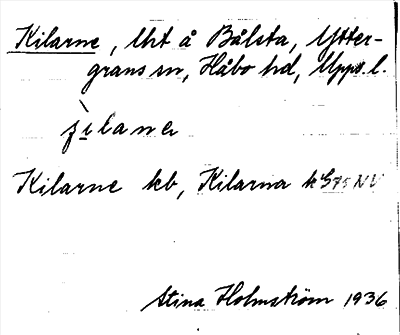 Kilarne, lht å Bålsta, Ytter-
grans sn, Håbo hd, Upps. l.
Kilarne kb, Kilarna k G 75 NV
Stina Holmström 1936